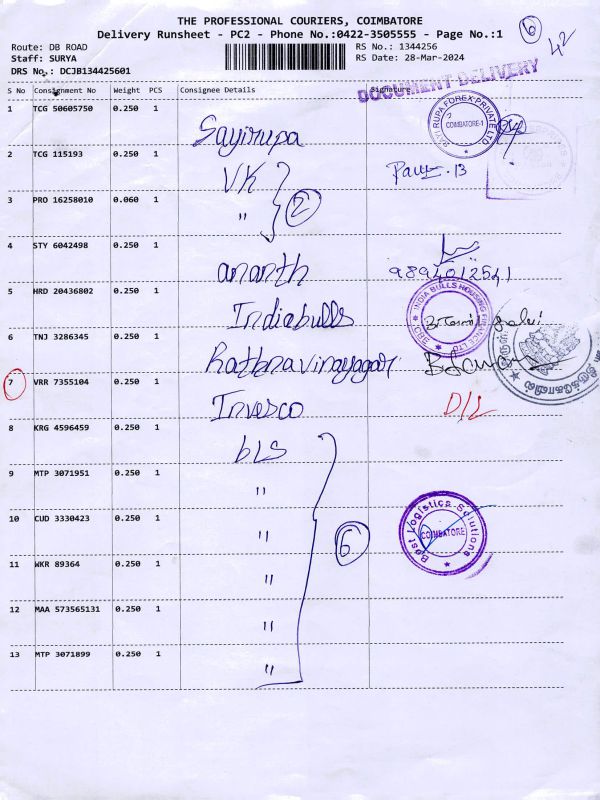 THE PROFESSIONAL COURIERS, COIMBATORE
Delivery Runsheet - PC2 - Phone No.:0422-3505555 - Page No.:1
Route: DB ROAD
Staff: SURYA
DRS No.: DCJB134425601
RS No.: 1344256
RS Date: 28-Mar-2024
6
42
DOCUMENT DELIVERY
S No Consignment No Weight PCS Consignee Details Signature
1 TCG 50605750 0.250 1 Sayirupa
SAYI RUPA FOREX PRIVATE LTD
COIMBATORE-1
2 TCG 115193 0.250 1 VK
13
3 PRO 16258010 0.060 1 "
2
4 STY 6042498 0.250 1 ananth
9894012541
5 HRD 20436802 0.250 1 Indiabulls
INDIA BULLS HOUSING FINANCE LTD
CBE
6 TNJ 3286345 0.250 1 Rathnavinayagar
7 VRR 7355104 0.250 1 Invesco D/L
8 KRG 4596459 0.250 1 bLS
9 MTP 3071951 0.250 1 "
10 CUD 3330423 0.250 1 "
6
Best Logistics Solutions
COIMBATORE
11 WKR 89364 0.250 1 "
12 MAA 573565131 0.250 1 "
13 MTP 3071899 0.250 1 "